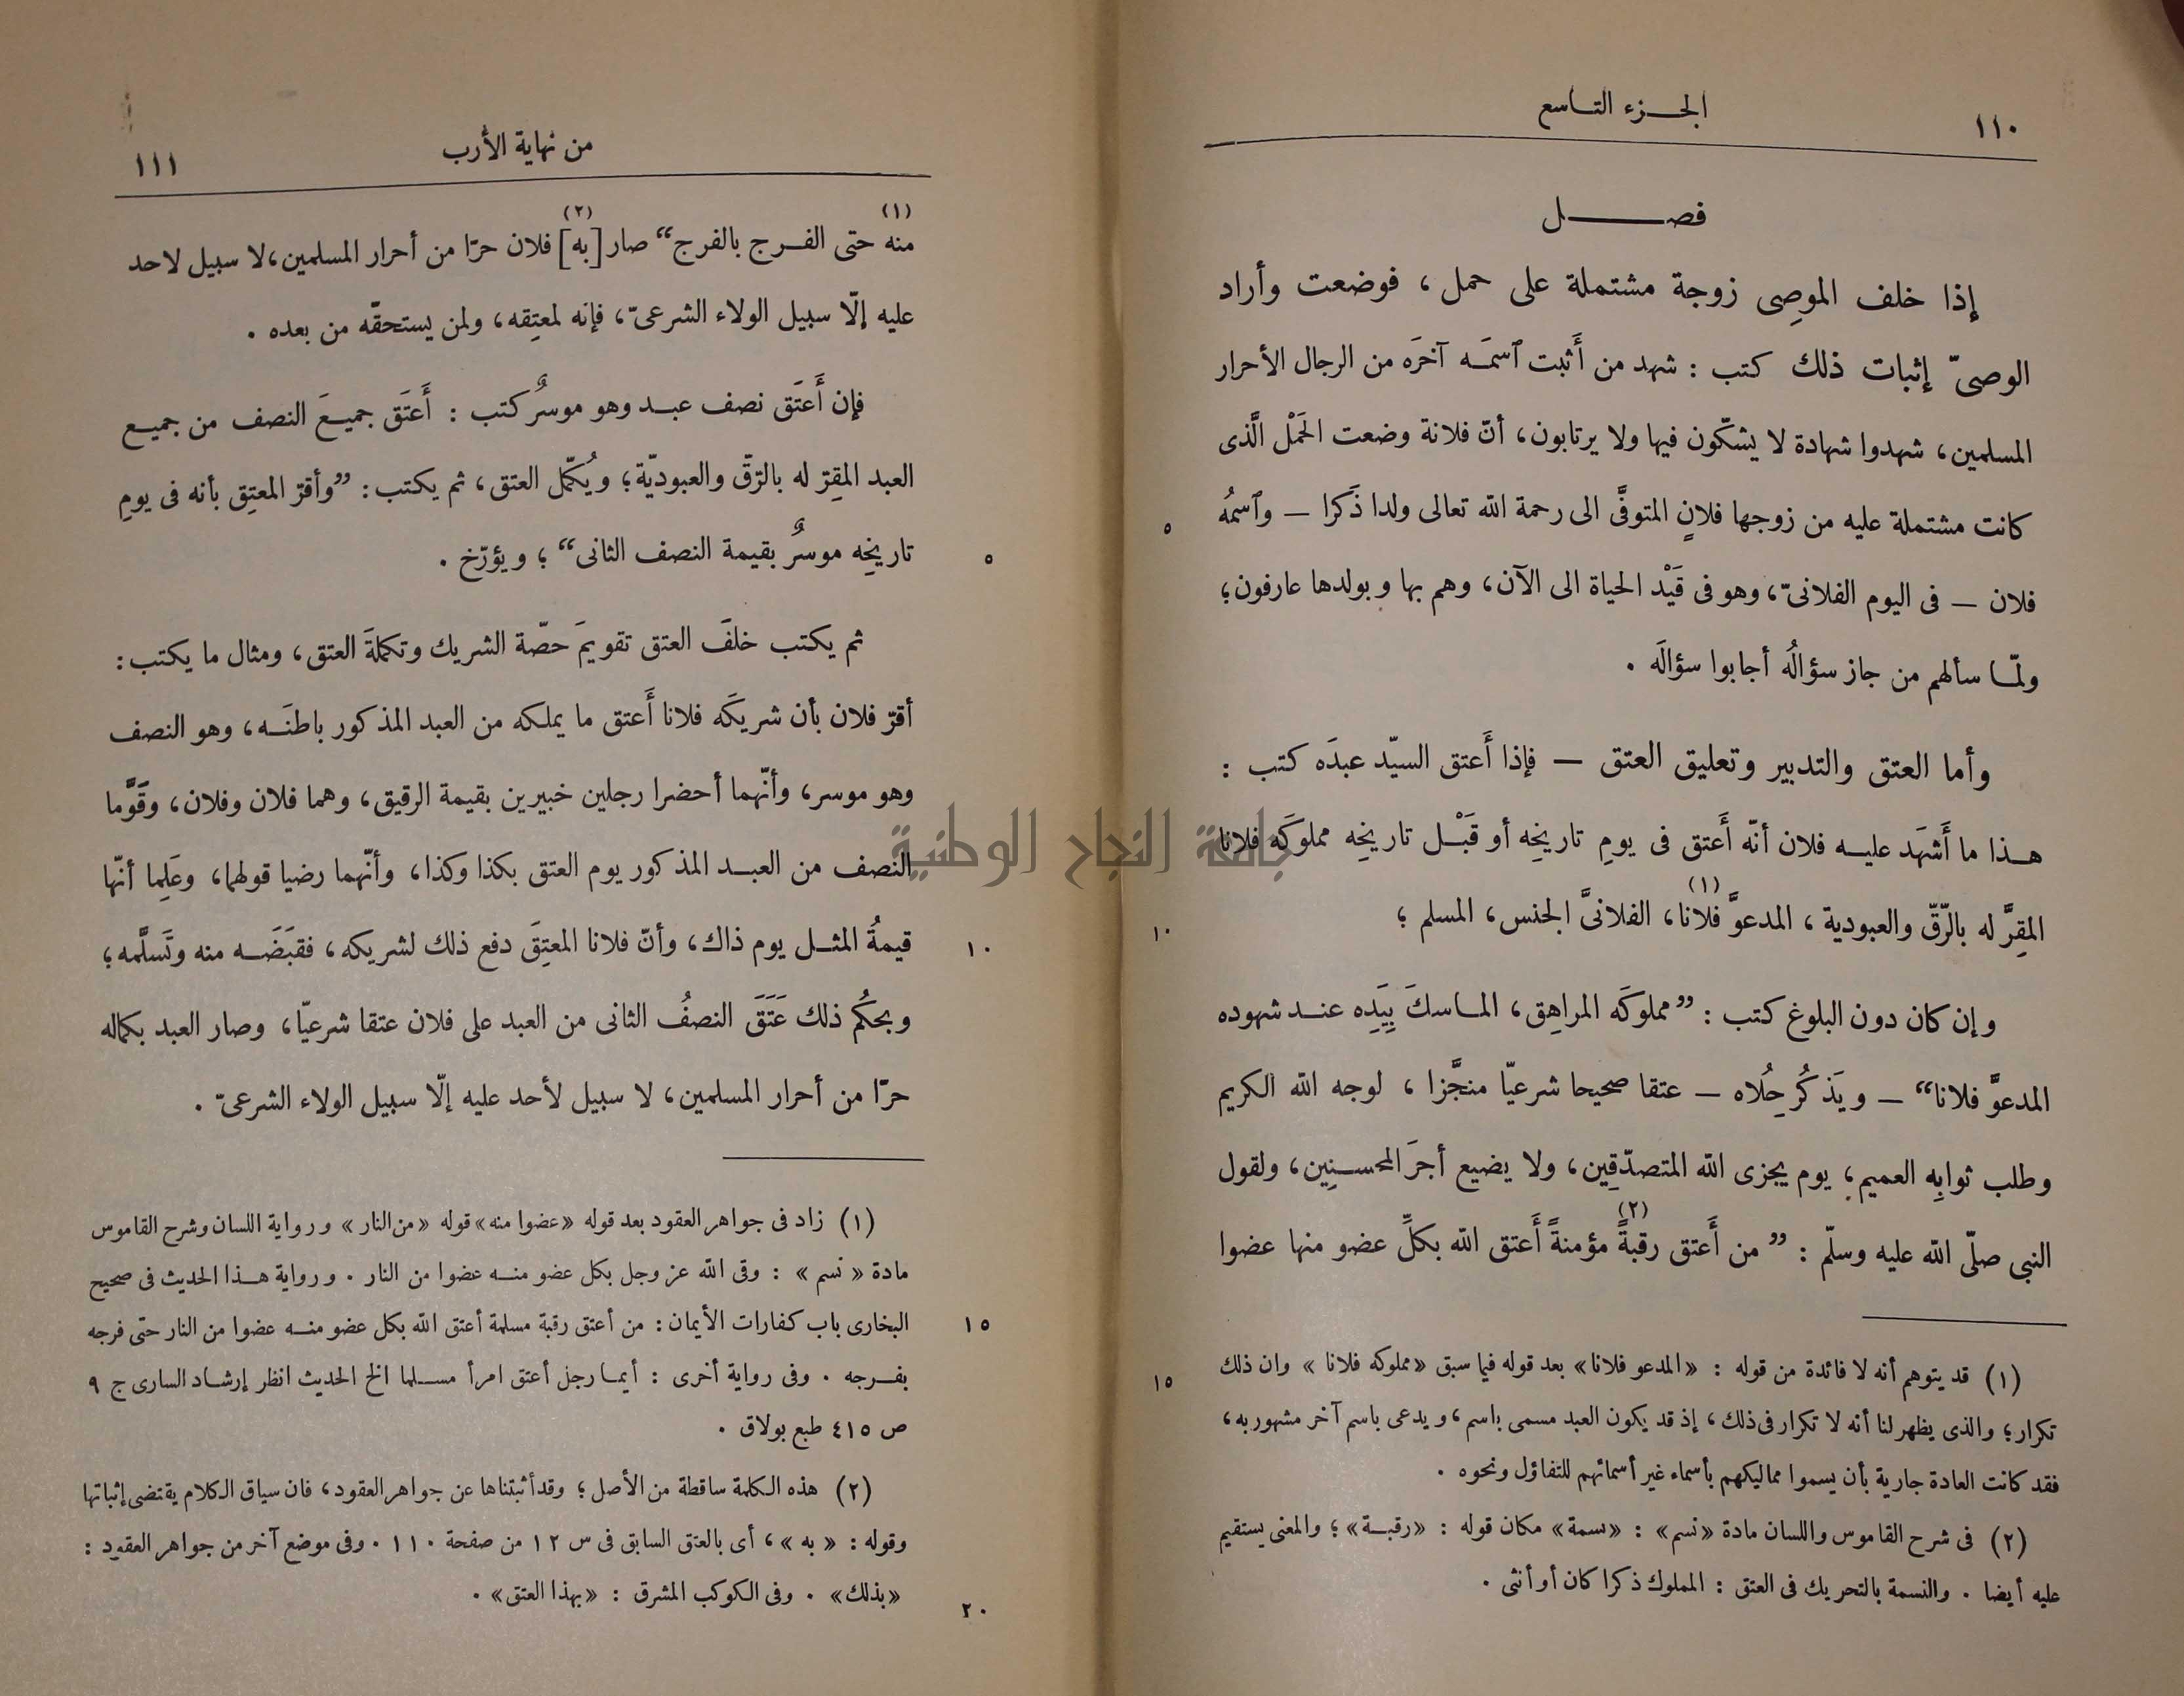 ١١٠
الجزء التاسع
فصل
إذا خلف الموصِى زوجة مشتملة على حمل ، فوضعت وأراد
الوصىّ إثبات ذلك كتب : شهد من أَثبت ٱسمَه آخرَه من الرجال الأحرار
المسلمين، شهدوا شهادة لا يشكّون فيها ولا يرتابون، أنّ فلانة وضعت الحَمْل الَّذى
كانت مشتملة عليه من زوجها فلانٍ المتوفَّى الى رحمة الله تعالى ولدا ذَكرا — وٱسمُه
٥
فلان — فى اليوم الفلانىّ، وهو فى قَيْد الحياة الى الآن، وهم بها وبولدها عارفون؛
ولمّا سألهم من جاز سؤالُه أجابوا سؤالَه .
وأما العتق والتدبير وتعليق العتق — فإذا أَعتق السيّد عبدَه كتب :
هذا ما أَشهَد عليه فلان أنّه أَعتق فى يومِ تاريخِه أو قَبْل تاريخِه مملوكَه فلانا
المقِرَّ له بالرّقّ والعبودية ، المدعوَّ فلانا(١)، الفلانىَّ الجنس، المسلم ؛
١٠
وإن كان دون البلوغ كتب : ”مملوكَه المراهِق، الماسكَ بِيَدِه عند شهوده
المدعوَّ فلانا“ — ويَذكُر حِلُاه — عتقا صحيحا شرعيّا منجَّزا ، لوجه الله الكريم
وطلب ثوابِه العميم، يوم يجزى الله المتصدّقِين، ولا يضيع أجرَ المحسنِين، ولقول
النبى صلّى الله عليه وسلّم : ” من أَعتق رقبةً(٢) مؤمنةً أَعتق الله بكلِّ عضو منها عضوا
(١) قد يتوهم أنه لا فائدة من قوله : «المدعو فلانا» بعد قوله فيما سبق «مملوكه فلانا » وان ذلك
١٥
تكرار؛ والذى يظهر لنا أنه لا تكرار فى ذلك ، إذ قد يكون العبد مسمى باسم ، ويدعى باسم آخر مشهور به ،
فقد كانت العادة جارية بأن يسموا مماليكهم بأسماء غير أسمائهم للتفاؤل ونحوه .
(٢) فى شرح القاموس واللسان مادة «نسم» : «نسمة» مكان قوله : «رقبة» ؛ والمعنى يستقيم
عليه أيضا . والنسمة بالتحريك فى العتق : المملوك ذكرا كان أو أنثى .
من نهاية الأرب
١١١
منه(١) حتى الفرج بالفرج“ صار [به](٢) فلان حرّا من أحرار المسلمين، لا سبيل لاحد
عليه إلّا سبيل الولاء الشرعىّ، فإنه لمعتِقه، ولمن يستحقّه من بعده .
فإن أَعتَق نصف عبد وهو موسرٌ كتب : أَعتَق جميعَ النصف من جميع
العبد المقِرّ له بالرّقّ والعبوديّة؛ ويُكمّل العتق، ثم يكتب: ”وأقرّ المعتِق بأنه فى يومِ
تاريخِه موسرٌ بقيمة النصف الثانى“ ؛ ويؤرّخ .
٥
ثم يكتب خلفَ العتق تقويمَ حصّة الشريك وتكملةَ العتق، ومثال ما يكتب:
أقرّ فلان بأن شريكَه فلانا أَعتق ما يملكه من العبد المذكور باطنَه، وهو النصف
وهو موسر، وأنّهما أحضرا رجلين خبيرين بقيمة الرقيق، وهما فلان وفلان، وقَوَّما
النصف من العبد المذكور يوم العتق بكذا وكذا، وأنّهما رضيا قولهما، وعَلِما أنّها
قيمةُ المثل يوم ذاك، وأنّ فلانا المعتِقَ دفع ذلك لشريكه، فقبَضَه منه وتَسلَّمه؛
١٠
وبحكُم ذلك عَتَقَ النصفُ الثانى من العبد على فلان عتقا شرعيّا، وصار العبد بكماله
حرّا من أحرار المسلمين، لا سبيل لأحد عليه إلّا سبيل الولاء الشرعىّ .
(١) زاد فى جواهر العقود بعد قوله «عضوا منه» قوله «من النار» ورواية اللسان وشرح القاموس
مادة «نسم» : وقى الله عز وجل بكل عضو منه عضوا من النار . ورواية هذا الحديث فى صحيح
البخارى باب كفارات الأيمان : من أعتق رقبة مسلمة أعتق الله بكل عضو منه عضوا من النار حتى فرجه
١٥
بفرجه . وفى رواية أخرى : أيما رجل أعتق امرأ مسلما الخ الحديث انظر إرشاد السارى ج ٩
ص ٤١٥ طبع بولاق .
(٢) هذه الكلمة ساقطة من الأصل ؛ وقد أثبتناها عن جواهر العقود، فان سياق الكلام يقتضى إثباتها
وقوله : « به » ، أى بالعتق السابق فى س ١٢ من صفحة ١١٠ . وفى موضع آخر من جواهر العقود :
«بذلك» . وفى الكوكب المشرق : «بهذا العتق» .
٢٠
جامعة النجاح الوطنية